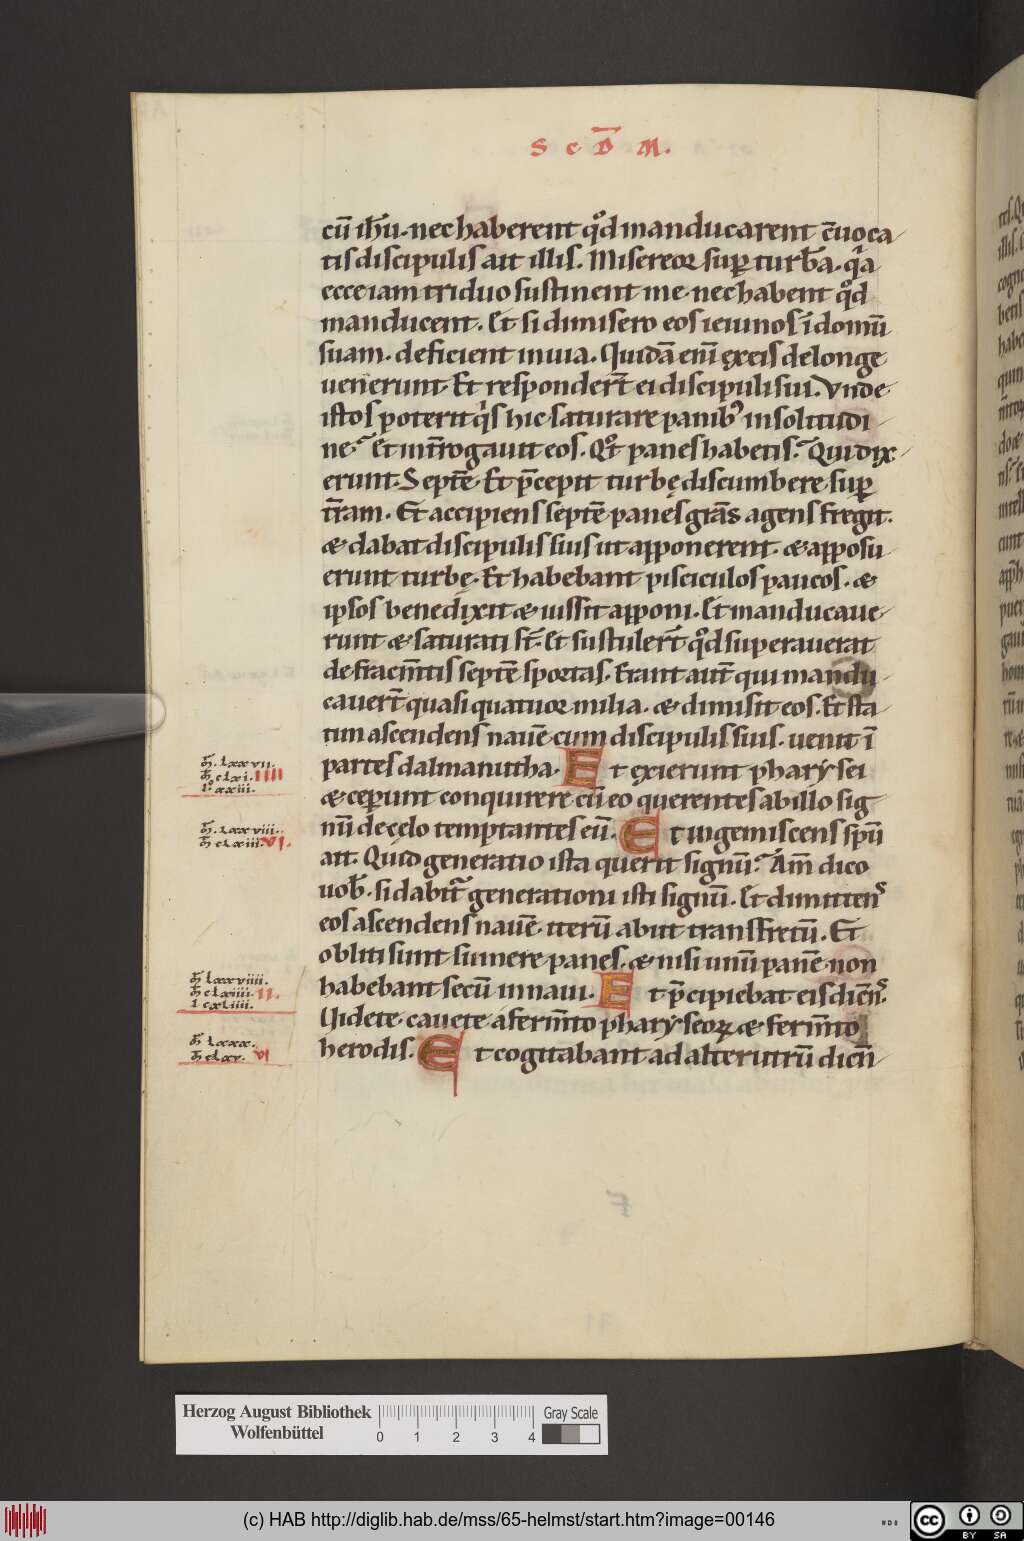 S c D̅ M.
cū ih̅u. nec haberent qd manducarent c̅uoca
tis discipulis ait illis. Misereor sup turba. qa
ecce iam triduo sustinent me. nec habent qd
manducent. Et si dimisero eos ieiunos ī domū
suam. deficient in uia. Quidā eni̅ ęx eis de longe
uenerunt. Et responder̅t ei discipuli sui. Vnde
istos poterit qis hic saturare panib; in solitudi
ne? Et int̅rogauit eos. Qt panes habetis? Qui dix
erunt. Septē. Et p̅cepit turbę discumbere sup
tr̅am. Et accipiens septē panes gra̅s agens fregit.
& dabat discipulis suis ut apponerent. & apposu
erunt turbę. Et habebant pisciculos paucos. &
ipsos benedixit & iussit apponi. Et manducaue
runt & saturati st̅. Et sustuler̅t qd superauerat
de fracm̅tis septē sportas. Erant aut̅ qui mandu
cauer̅t quasi quatuor milia. & dimisit eos. Et sta
tim ascendens nauē cum discipulis suis. uenit ī
partes dalmanutha. Et ęxierunt pharysei
& cęperunt conquirere cū eo querentes ab illo sig
nū de cęlo temptantes eū. Et ingemiscens spū
ait. Quid generatio ista querit signū? Am̅ dico
uob̅. si dabit̅ generationi isti signū. Et dimittens
eos ascendens nauē iterū abiit trans fretū. Et
obliti sunt sumere panes. & nisi unū panē non
habebant secū in naui. Et p̅cipiebat eis dicen̅s.
Videte. cauete a ferm̅to pharyseorꝝ & ferm̅to
herodis. Et cogitabant ad alterutrū dicn̅
m̅. lxxvii.
m̅ clxi. IIII
lo xxiii.
m̅. lxxviii.
m̅ clxiii. VI.
m̅ lxxviiii.
m̅ clxiiii. II.
l cxliiii.
m̅ lxxx.
m̅ clxv. VI
Herzog August Bibliothek
Wolfenbüttel
0 1 2 3 4
Gray Scale
(c) HAB http://diglib.hab.de/mss/65-helmst/start.htm?image=00146
cc BY SA